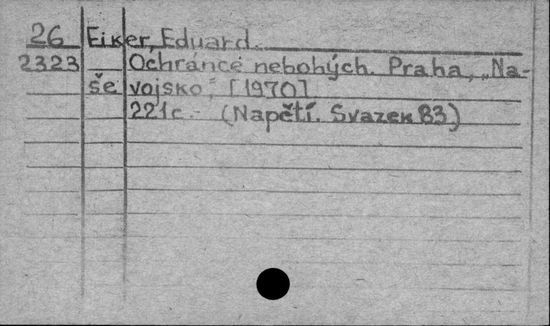 26 Eiker, Eduard.
2323 Ochráncé nebohých. Praha, „Na-
še vojsko", [1970]
221c.- (Napětí. Svazek 83)